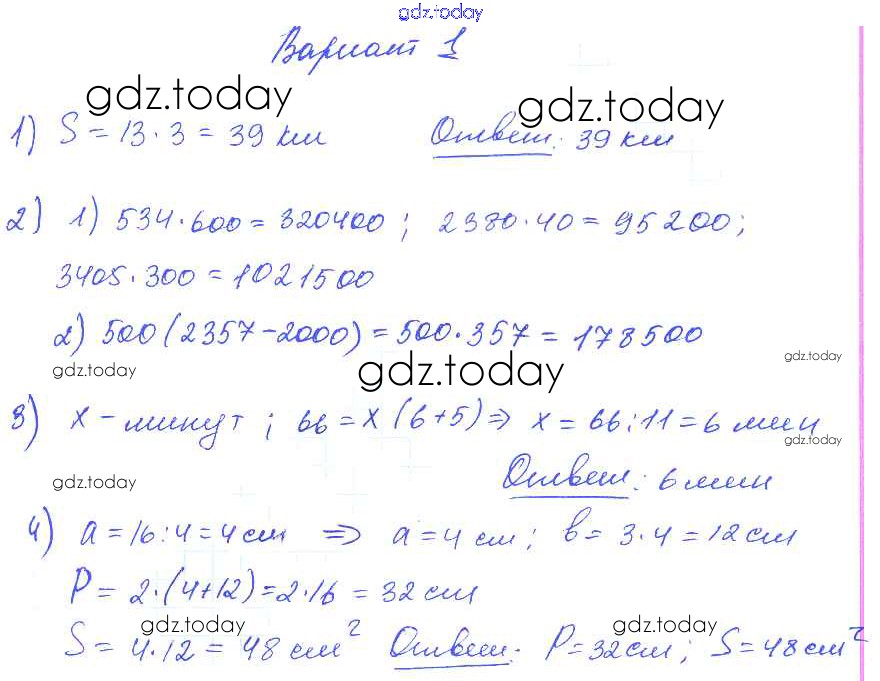 gdz.today
Вариант 1
gdz.today gdz.today
1) S = 13 · 3 = 39 км Ответ: 39 км
2) 1) 534 · 600 = 320400 ; 2380 · 40 = 95200;
3405 · 300 = 1021500
2) 500 (2357 - 2000) = 500 · 357 = 178500
gdz.today gdz.today gdz.today
3) x - минут ; 66 = x (6 + 5) ⇒ x = 66 : 11 = 6 мин
gdz.today
gdz.today Ответ: 6 мин
4) a = 16 : 4 = 4 см ⇒ a = 4 см ; b = 3 · 4 = 12 см
P = 2 · (4 + 12) = 2 · 16 = 32 см
gdz.today gdz.today
S = 4 · 12 = 48 см² Ответ: P = 32 см ; S = 48 см²